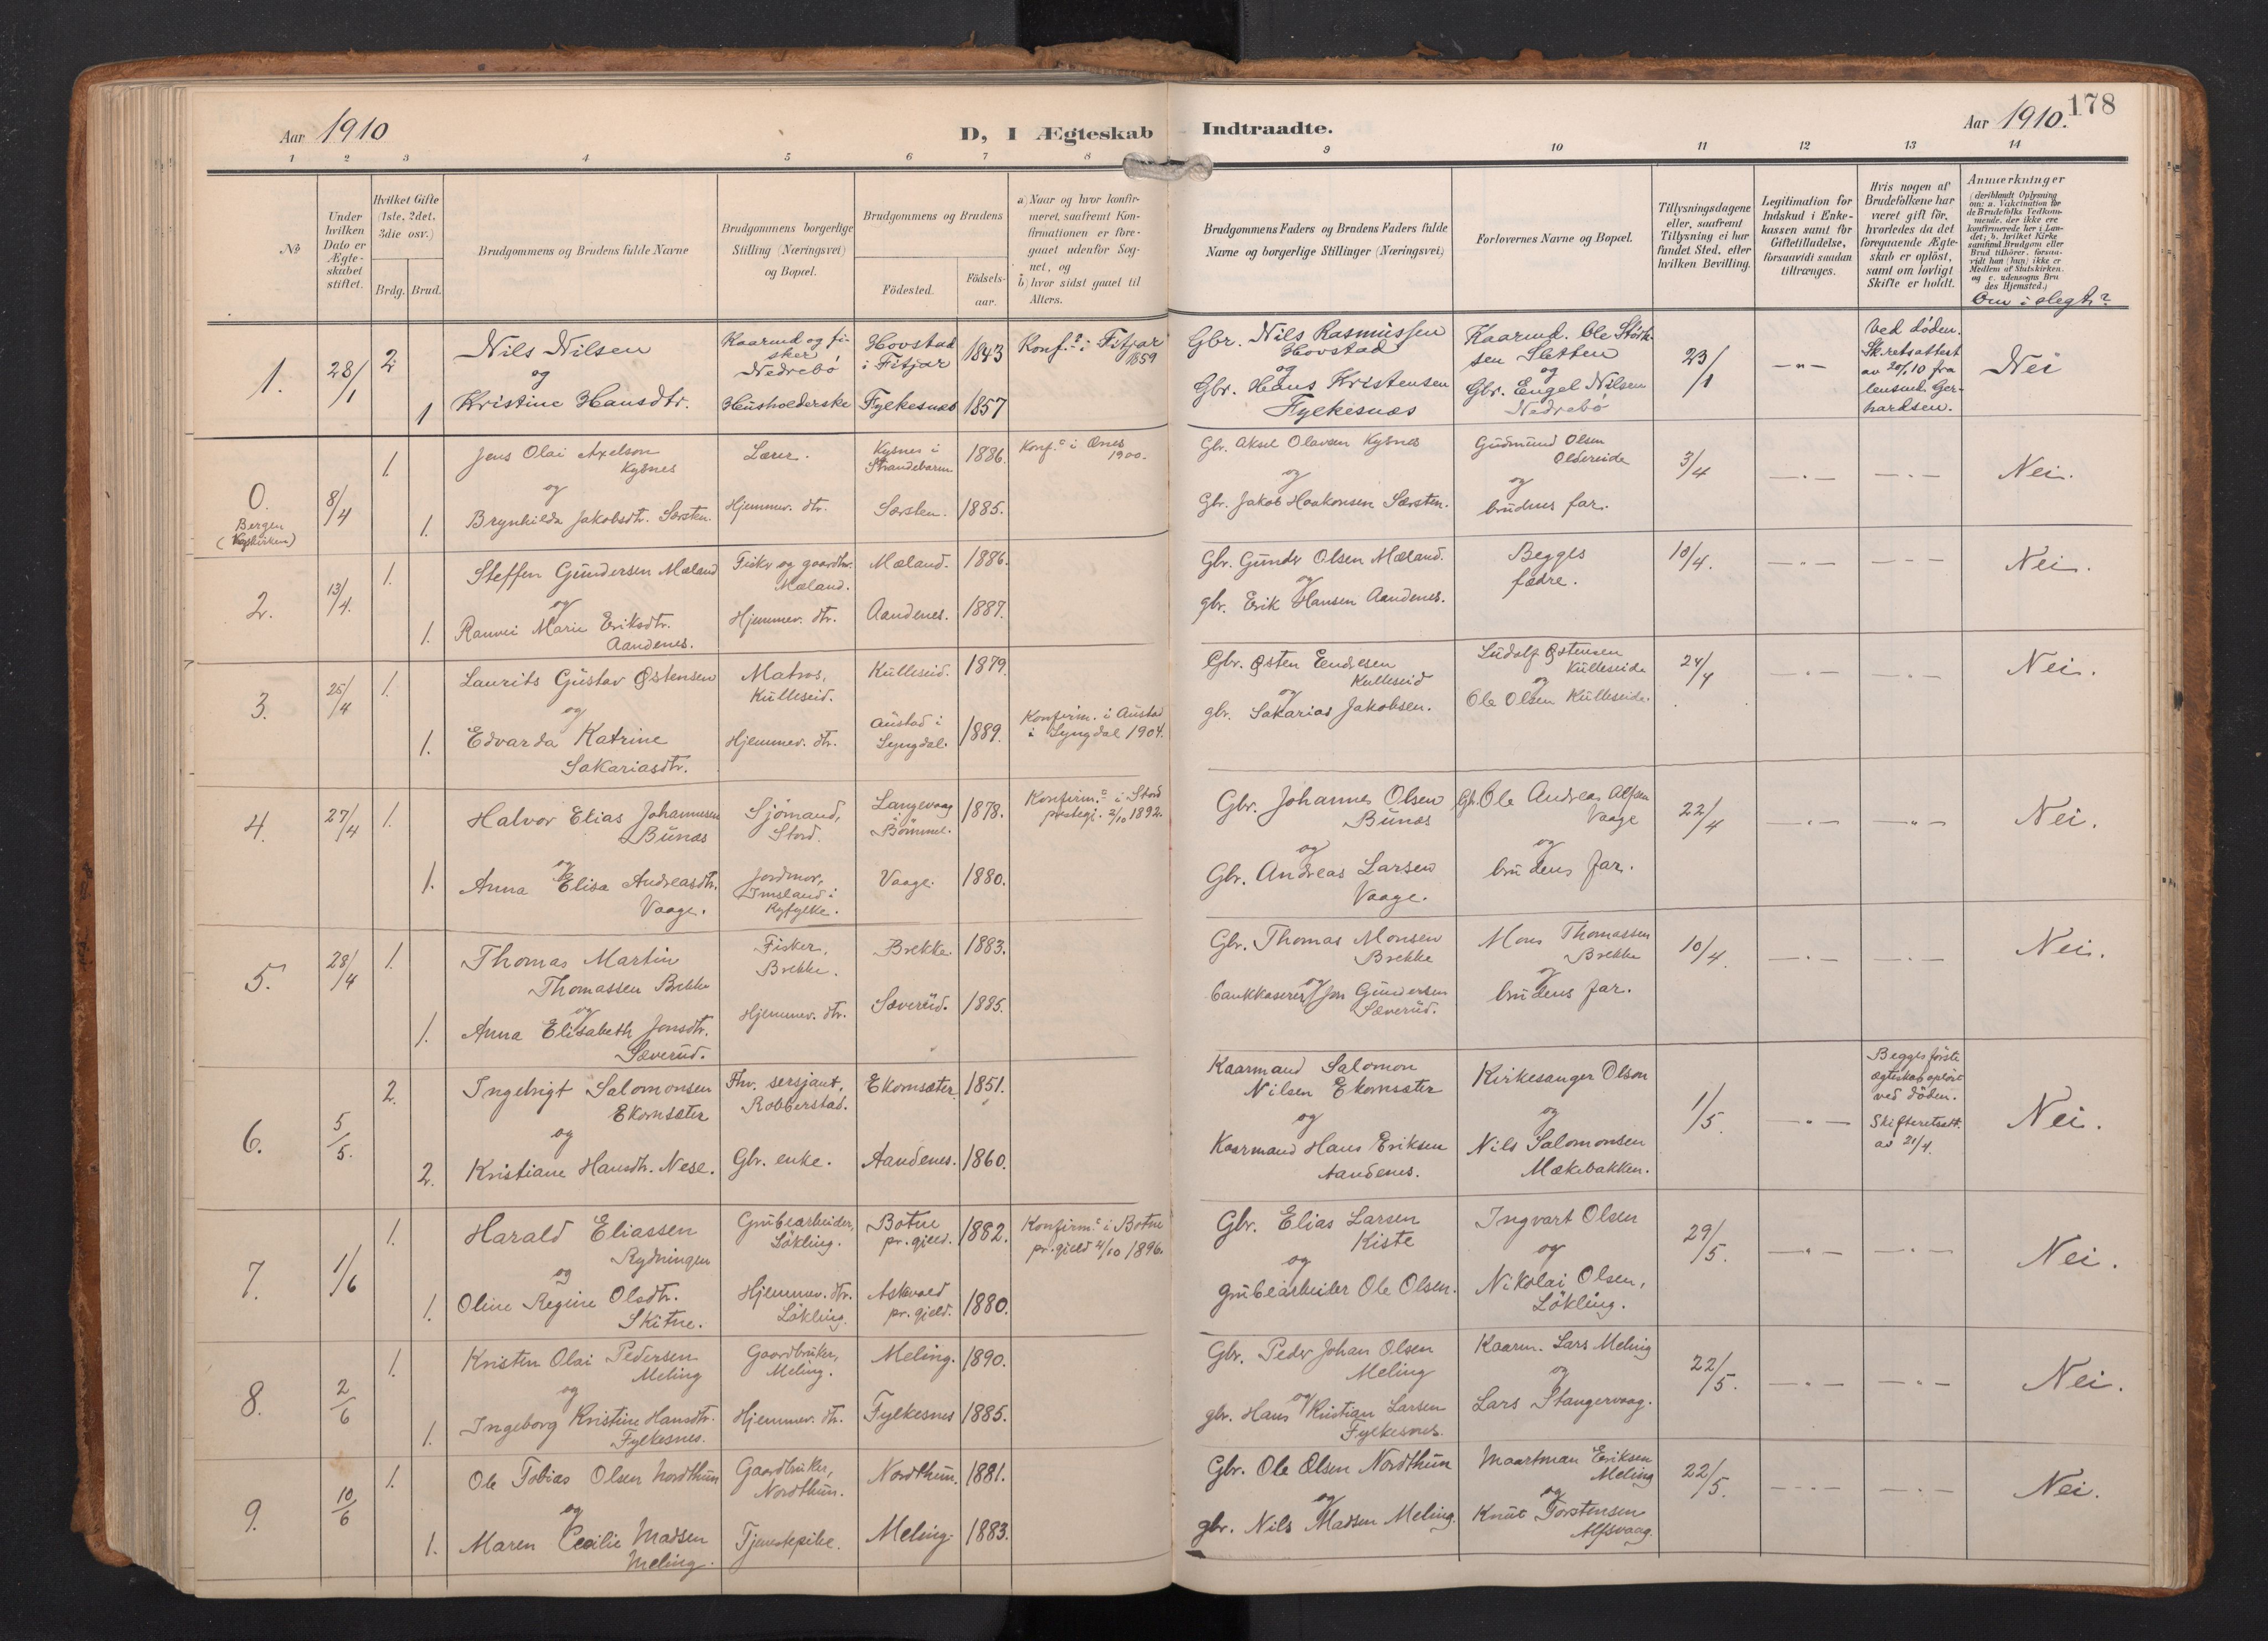 Aar 1910
D, I Ægteskab Indtraadte.
Aar 1910.
178
1 2 3 4 5 6 7 8 9 10 11 12 13 14
No
Under
hvilken
Dato er
Ægte-
skabet
stiftet.
Hvilket Gifte
(1ste, 2det,
3die osv.)
Brdg.
Brud.
Brudgommens og Brudens fulde Navne
Brudgommens borgerlige
Stilling (Næringsvei)
og Bopæl.
Brudgommens og Brudens
Fødested.
Fødsels-
aar.
a) Naar og hvor konfir-
meret, saafremt Kon-
firmationen er fore-
gaaet udenfor Sog-
net, og
b) hvor sidst gaaet til
Alters.
Brudgommens Faders og Brudens Faders fulde
Navne og borgerlige Stillinger (Næringsvei)
Forlovernes Navne og Bopæl.
Tillysningsdagene
eller, saafremt
Tillysning ei har
fundet Sted, efter
hvilken Bevilling.
Legitimation for
Indskud i Enke-
kassen samt for
Giftetilladelse,
forsaavidt saadan
tiltrænges.
Hvis nogen af
Brudefolkene har
været gift før,
hvorledes da det
foregaaende Ægte-
skab er opløst,
samt om lovligt
Skifte er holdt.
Anmærkninger
(deriblandt Oplysning
om: a. Vakcination for
de Brudefolks Vedkom-
mende, der ikke ere
konfirmerede her i Lan-
det; b. hvilket Kirke-
samfund Brudgom eller
Brud tilhører, forsaa-
vidt han (hun) ikke er
Medlem af Statskirken.
og c. udensogns Bru-
des Hjemsted.)
Om i slegt?
1.
28/1
2
Nils Nilsen
og
1
Kristine Hansdtr.
Kaarmd og fi-
sker
Nedrebø
Husholderske
Hovstad
i Fitjar
1843
Fylkesnæs 1857
Konf. i Fitjar
1859
Gbr. Nils Rasmussen
Hovstad
og
Gbr. Hans Kristensen
Fylkesnæs
Kaarmd. Ole Størk-
sen Sletten
og
Gbr. Engel Nilsen
Nedrebø
23/1
— " —
Ved døden.
Sk.retsattest
av 20/1 10 fra
lensmd. Ger-
hardsen.
Nei
0.
Bergen
8/4
1.
Jens Olai Axelson
Kysnes
og
1.
Brynhilda Jakobsdtr. Særsten.
Lærer.
Hjemmev. dtr.
Kysnes i
Strandebarm
1886.
Særsten. 1885.
Konf. i Ænes
1900.
Gbr. Aksel Olavsen Kysnes
og
Gbr. Jakob Haakonsen Særsten.
Gudmund Olsen
Oldereide
og
brudens far.
3/4
— " —
— " —
Nei.
2.
13/4.
1.
Steffen Gundersen Mæland
og
1.
Ranvei Marie Eriksdtr.
Aandenes.
Fisker og gaardbr.
Mæland.
Hjemmev. dtr.
Mæland. 1886.
Aandenes. 1887.
Gbr. Gunder Olsen Mæland.
og
gbr. Erik Hansen Aandenes.
Begges
fædre.
10/4.
— " —
— " —
Nei.
3.
25/4
1.
Laurits Gustav Østensen
og
1.
Edvarda Katrine
Sakariasdtr.
Matros,
Kulleseid.
Hjemmev. dtr.
Kulleseid. 1879.
Austad i
Lyngdal. 1889.
Konfirm. i Austad
i Lyngdal 1904.
Gbr. Østen Endresen
Kulleseid
og
gbr. Sakarias Jakobsen.
Ludolf Østensen
Kulleseide
og
Ole Olsen Kulleseide.
24/4
— " —
— " —
Nei.
4.
27/4
1.
Halvor Elias Johannesen
Bunæs
og
1.
Anna Elisa Andreasdtr.
Vaage.
Sjømand,
Stord.
Jordmor,
Imsland i
Ryfylke.
Langevaag
Bømmel. 1878.
Vaage. 1880.
Konfirm. i Stord
prestegj. 2/10 1892.
Gbr. Johannes Olsen
Bunæs
og
Gbr. Andreas Larsen
Vaage.
Gbr. Ole Andreas Alfsen
Vaage
og
brudens far.
22/4
— " —
— " —
Nei.
5.
28/4
1.
Thomas Martin
Thomassen Brekke
og
1.
Anna Elisabeth Jonsdtr.
Sæverud.
Fisker,
Brekke.
Hjemmev. dtr.
Brekke. 1883.
Sæverud. 1885.
Gbr. Thomas Monsen
Brekke
og
bankkaserer Jon Gundersen
Sæverud.
Mons Thomassen
Brekke
og
brudens far.
10/4.
— " —
— " —
Nei.
6.
5/5.
2.
Ingebrigt Salomonsen
Ekornsæter
og
2.
Kristiane Hansdtr. Nese.
Fhv. sersjant,
Robberstad.
Gbr. enke.
Ekornsæter. 1851.
Aandenes. 1860.
Kaarmand Salomon
Nilsen Ekornsæter
og
Kaarmand Hans Eriksen
Aandenes.
Kirkesanger Olson
og
Nils Salomonsen
Mækebakken.
1/5.
— " —
Begges første
ægteskab opløst
ved døden.
Skifteretsatt.
av 21/4.
Nei.
7.
1/6
1.
Harald Eliassen
Rydningen
og
1.
Oline Regine Olsdtr.
Skitne.
Grubearbeider,
Løkling.
Hjemmev. dtr.
Løkling.
Botne
pr.gjeld. 1882.
Askvoll
pr. gjeld. 1880.
Konfirm. i Botne
pr.gjeld 4/10 1896.
Gbr. Elias Larsen
Kiste
og
Grubearbeider Ole Olsen.
Ingvart Olsen
og
Nikolai Olsen,
Løkling.
29/5.
— " —
— " —
Nei.
8.
2/6
1.
Kristen Olai Pedersen
Meling
og
1.
Ingeborg Kristine Hansdtr.
Fylkesnes.
Gaardbruker,
Meling.
Hjemmev. dtr.
Meling. 1890.
Fylkesnes 1885.
Gbr. Peder Johan Olsen
Meling
og
gbr. Hans Kristian Larsen
Fylkesnes.
Kaarm. Lars Meling
og
Lars Stangervaag.
22/5.
— " —
— " —
Nei.
9.
10/6
1.
Ole Tobias Olsen Nordthun
og
1.
Maren Cecilie Madsen
Meling.
Gaardbruker,
Nordthun.
Tjenestepike.
Nordthun. 1881.
Meling. 1883.
Gbr. Ole Olsen Nordthun
og
gbr. Nils Madsen Meling.
Maartman Eriksen
Meling
og
Knut Torstensen
Alfsvaag.
22/5.
— " —
— " —
Nei.